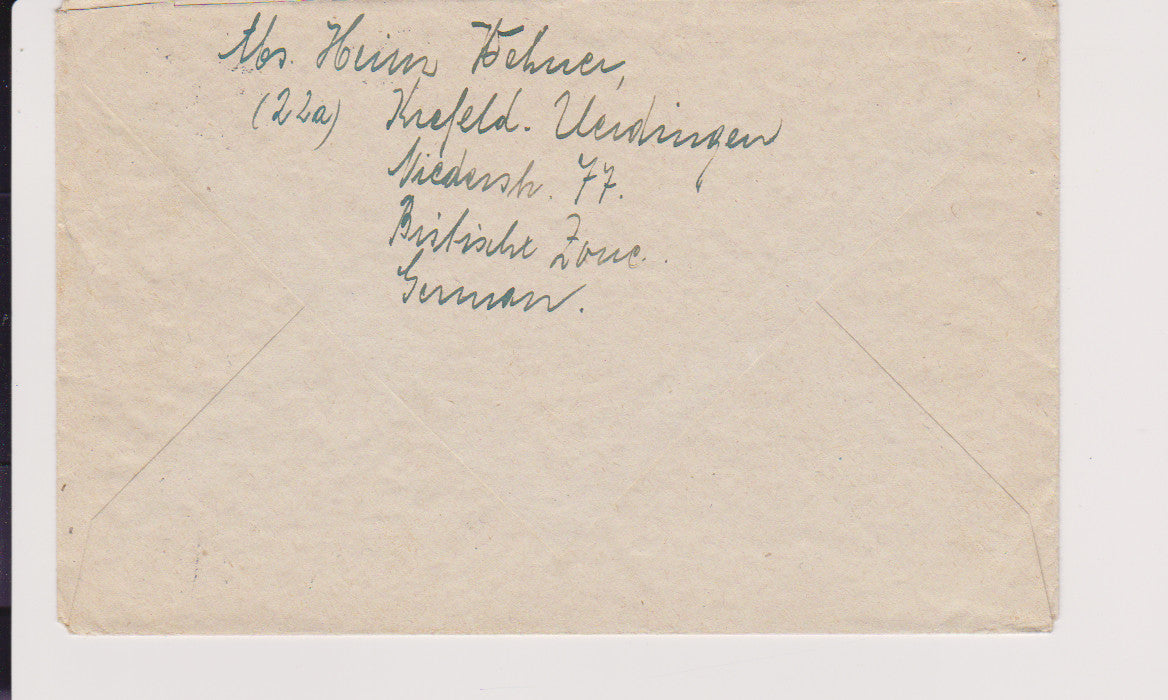 Abs. Heinz
(22a) Krefeld. Uerdingen
Niederstr. 77.
Britische Zone.
German.